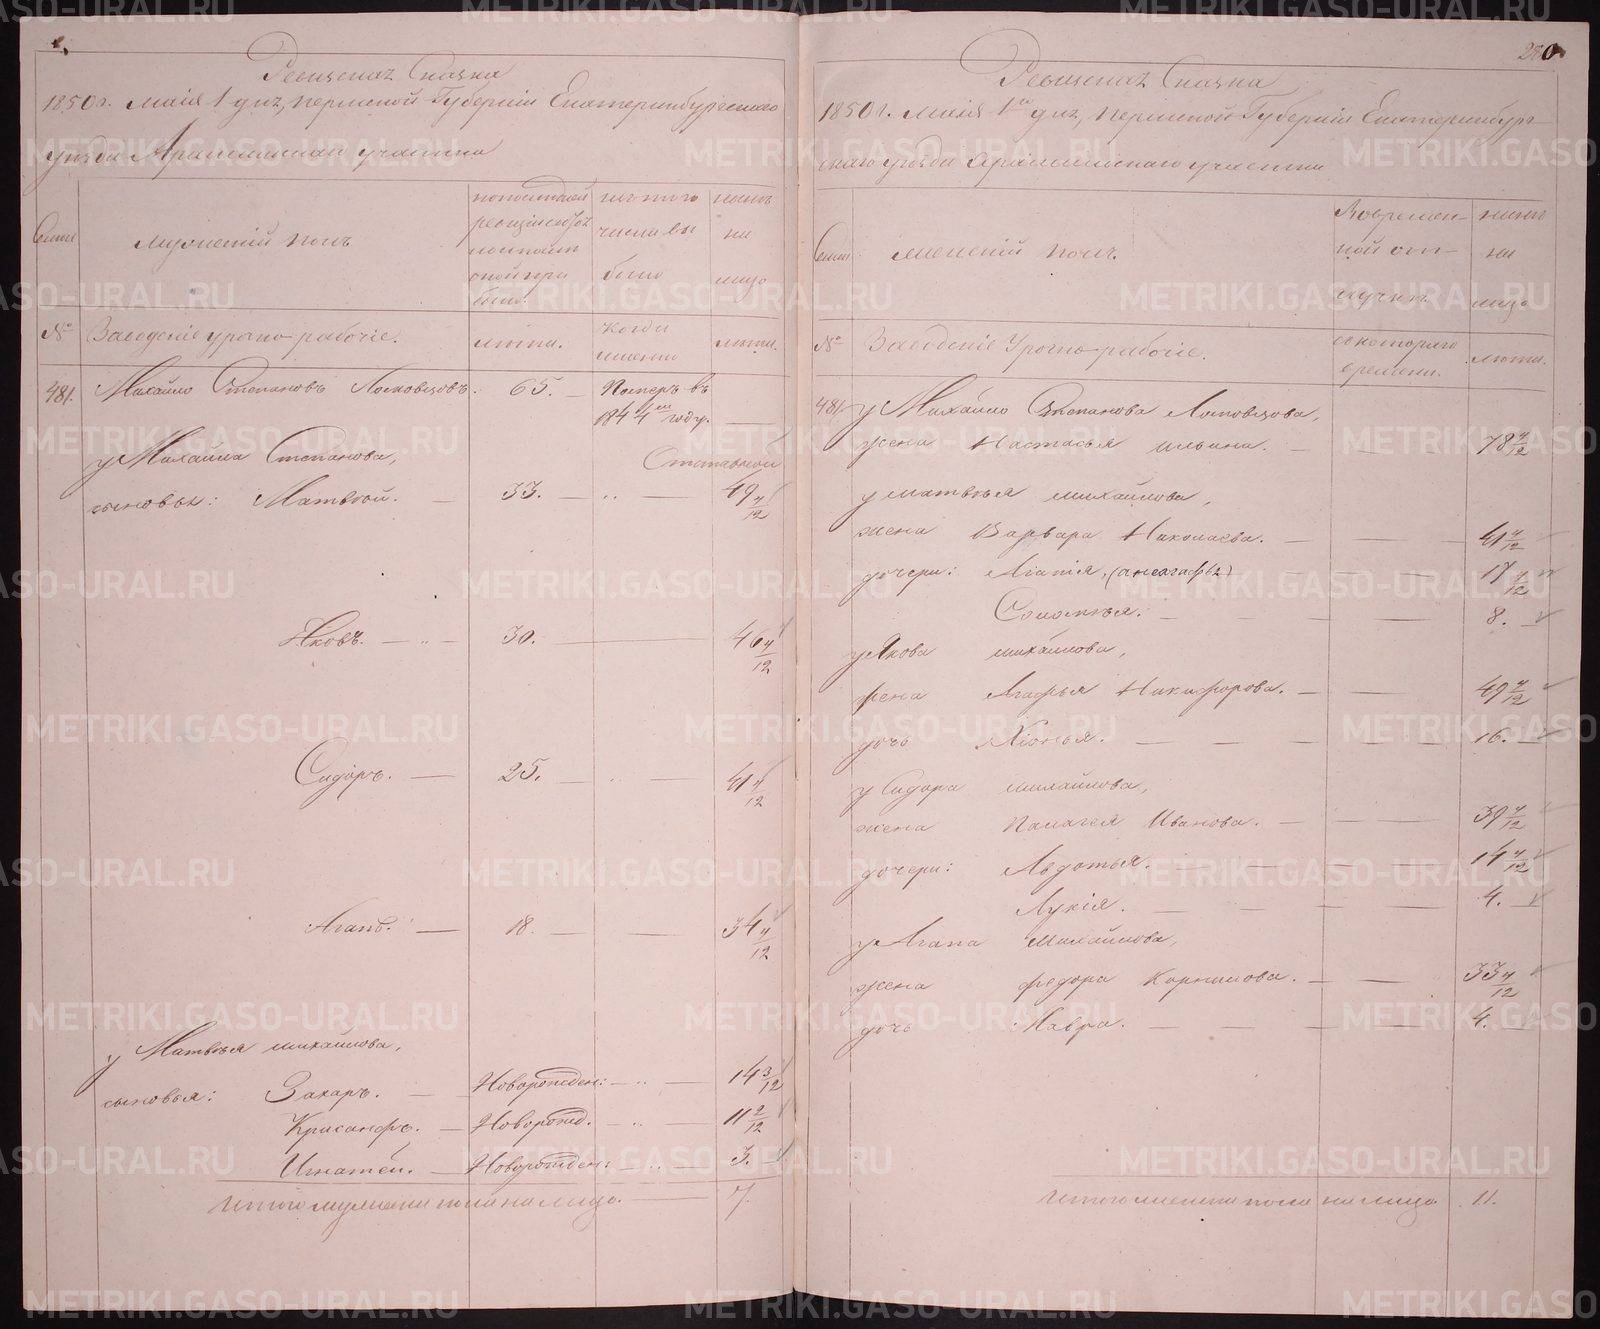 Ревизская Сказка
1850 г. маія 1 дня, Пермской Губерніи Екатеринбургскаго
уезда Арамильскаго участка
Семьи
мужескій полъ
по последней ревизіи состояло и после оной прибыло
изъ того числа выбыло
ныне на лицо
№
Заводскіе урочно-рабочіе.
лета.
когда именно
лета.
481.
Михайло Степановъ
65.
Померъ въ
1844 году.
у Михайла Степанова,
сыновья: Матвей.
33.
49 4/12
Яковъ.
30.
46 4/12
Сидоръ.
25.
41 4/12
Агапъ.
18.
34 4/12
у Матвея михайлова,
сыновья: Захаръ.
Новорожден:
14 3/12
Крисанфъ.
Новорожд.
11 2/12
Игнатей.
Новорожден:
3.
Итого мужеска пола на лицо.
7.
280
Ревизская Сказка
1850 г. маія 1 дня, Пермской Губерніи Екатеринбург
скаго уезда Арамильскаго участка
Семьи
женскій полъ.
Во временной отлучке
ныне на лицо
№
Заводскіе Урочно-рабочіе.
съ котораго времени.
лета.
481.
у Михайло Степанова
жена Настасья ильина.
78 4/12
у матвея михайлова,
жена Варвара Николаева.
41 4/12
дочери: Агапія,
17 4/12
Соломея.
8.
у Якова михайлова,
жена Агафья Никифорова.
49 4/12
дочь Хіонья.
16.
у Сидора михайлова,
жена Палагея Иванова.
39 4/12
дочери: Авдотья.
14 4/12
Лукія.
4.
у Агапа Михайлова,
жена федора Корнилова.
33 4/12
дочь Мавра.
4.
Итого женска пола на лицо
11.
METRIKI.GASO-URAL.RU